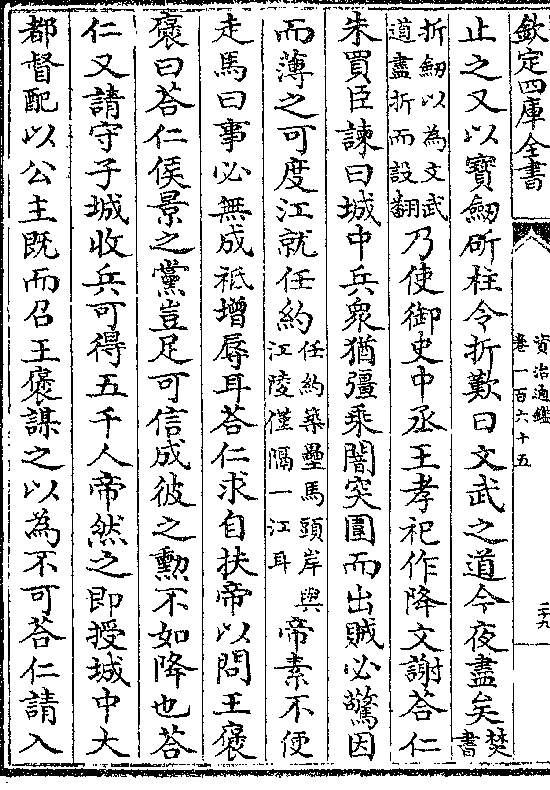 欽定四庫全書
資治通鑑
卷一百六十五
二十九
止之又以寶劒斫柱令折歎曰文武之道今夜盡矣焚書
折劒以為文武道盡折而設翻乃使御史中丞王孝祀作降文謝荅仁
朱買臣諫曰城中兵衆猶彊乗闇突圍而出賊必驚因
而薄之可度江就任約任約築壘馬頭岸與江陵僅隔一江耳帝素不便
走馬曰事必無成祗增辱耳荅仁求自扶帝以問王褒
褒曰荅仁侯景之黨豈足可信成彼之勲不如降也荅
仁又請守子城收兵可得五千人帝然之即授城中大
都督配以公主既而召王褒謀之以為不可荅仁請入